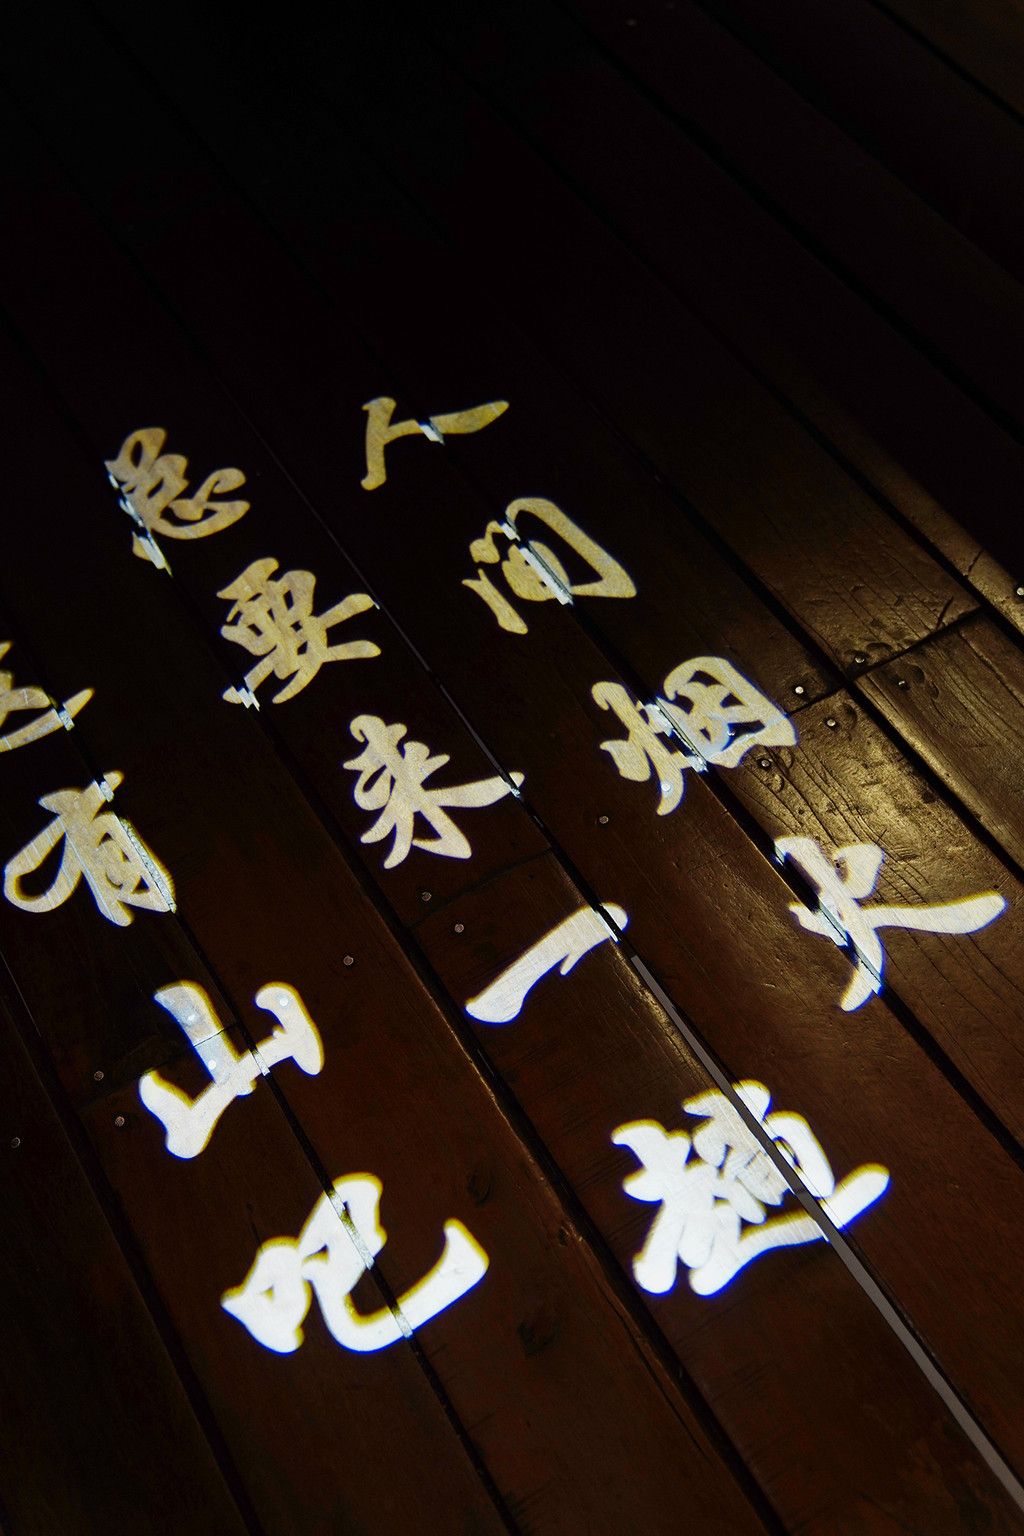 人间烟火
总要来一趟
有山吧